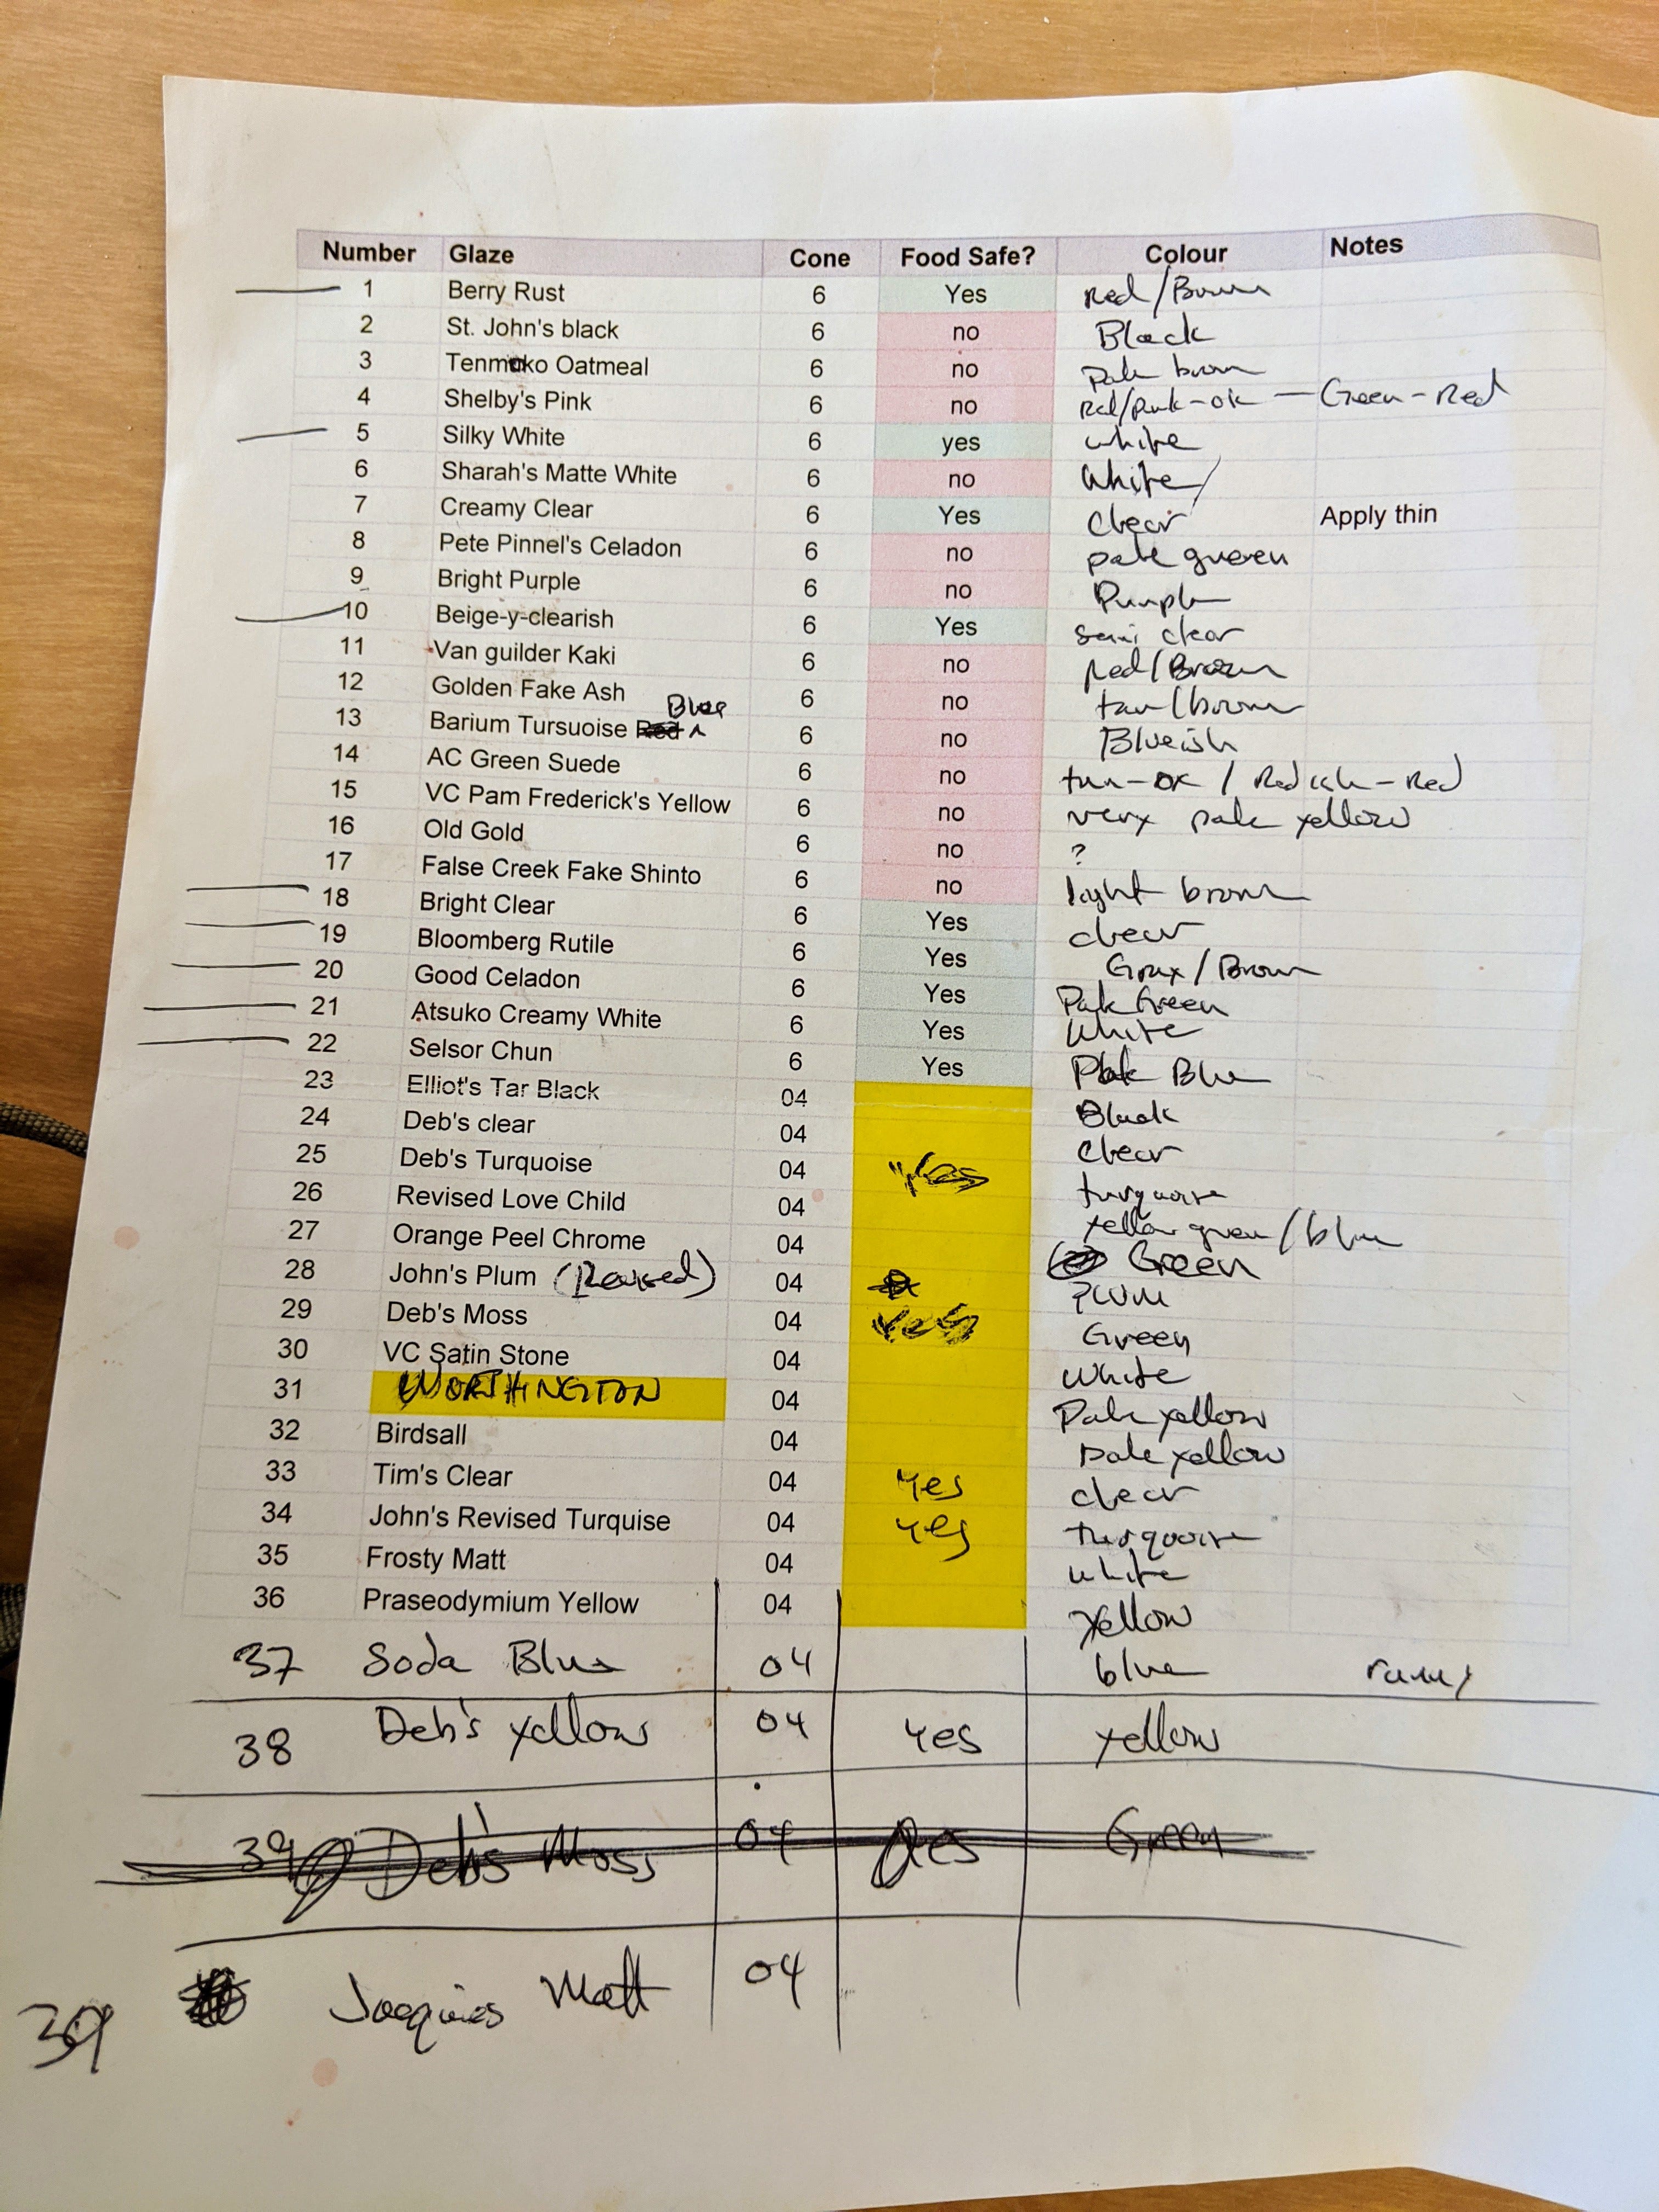 Number Glaze Cone Food Safe? Colour Notes
1 Berry Rust 6 Yes Red/Brown
2 St. John's black 6 no Black
3 Tenmoko Oatmeal 6 no Pale brown
4 Shelby's Pink 6 no Red/Pink-ok — Green-Red
5 Silky White 6 yes white
6 Sharah's Matte White 6 no White
7 Creamy Clear 6 Yes Clear Apply thin
8 Pete Pinnel's Celadon 6 no pale green
9 Bright Purple 6 no Purple
10 Beige-y-clearish 6 Yes semi clear
11 Van guilder Kaki 6 no Red/Brown
12 Golden Fake Ash 6 no tan/brown
13 Barium Tursuoise Red Blue 6 no Blueish
14 AC Green Suede 6 no tan-ox / Red - Red
15 VC Pam Frederick's Yellow 6 no very pale yellow
16 Old Gold 6 no ?
17 False Creek Fake Shinto 6 no light brown
18 Bright Clear 6 Yes clear
19 Bloomberg Rutile 6 Yes Gray/Brown
20 Good Celadon 6 Yes Pale Green
21 Atsuko Creamy White 6 Yes White
22 Selsor Chun 6 Yes Pale Blue
23 Elliot's Tar Black 04 Black
24 Deb's clear 04 Clear
25 Deb's Turquoise 04 Yes turquoise
26 Revised Love Child 04 Yellow green/blue
27 Orange Peel Chrome 04 Green
28 John's Plum (Revised) 04 Plum
29 Deb's Moss 04 Yes Green
30 VC Satin Stone 04 White
31 WORTHINGTON 04 Pale yellow
32 Birdsall 04 Pale yellow
33 Tim's Clear 04 Yes clear
34 John's Revised Turquise 04 Yes turquoise
35 Frosty Matt 04 white
36 Praseodymium Yellow 04 Yellow
37 Soda Blue 04 blue runny
38 Deb's Yellow 04 Yes Yellow
39 Deb's Moss 04 Yes Green
39 Jacquies Matt 04